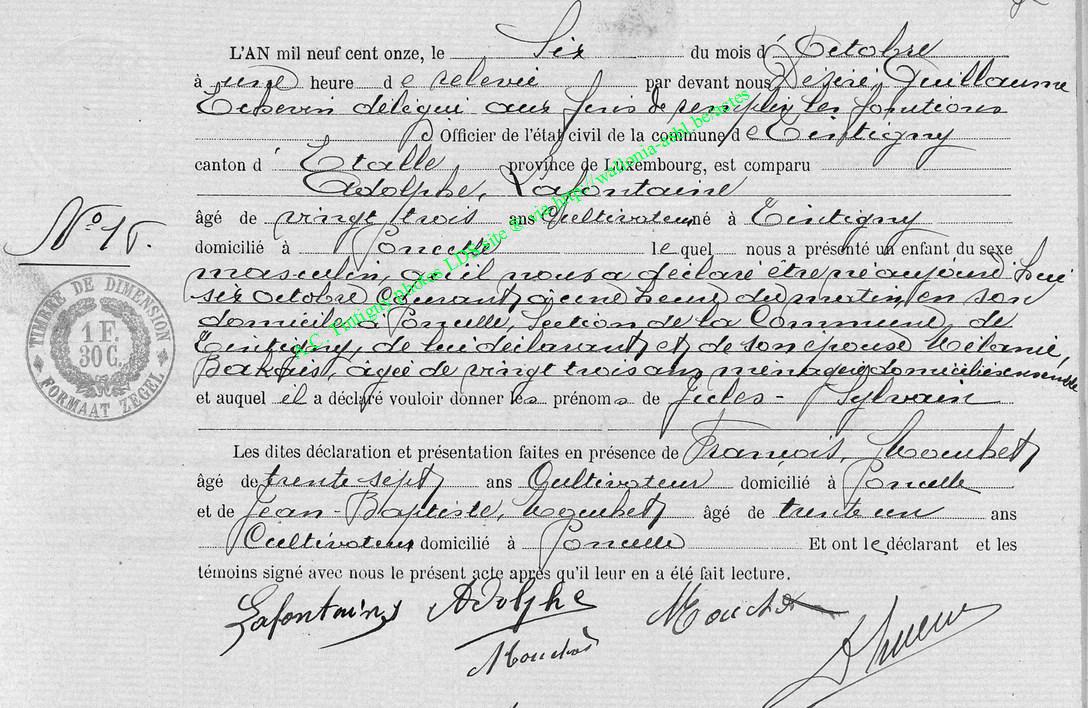 L'AN mil neuf cent onze, le Six du mois d' Octobre
à une heure de relevée par devant nous Désiré, Guillaume
Echevin délégué aux fins de remplir les fonctions
Officier de l'état civil de la commune de Tintigny
canton d' Etalle province de Luxembourg, est comparu
Adolphe, Lafontaine
âgé de vingt trois ans Cultivateur, né à Tintigny
N° 15.
domicilié à Poncelle lequel nous a présenté un enfant du sexe
masculin, qu'il nous a déclaré être né aujourd'hui
six octobre Courant, à une heure du matin, en son
domicile à Poncelle, Section de la Commune de
Tintigny, de lui déclarant et de son épouse Mélanie,
âgée de vingt trois ans ménagère domiciliés ensemble
et auquel il a déclaré vouloir donner les prénoms de Jules - Sylvain
Les dites déclaration et présentation faites en présence de François, Mouchet
âgé de trente sept ans Cultivateur domicilié à Poncelle
et de Jean-Baptiste, Mouchet âgé de trente un ans
Cultivateur, domicilié à Poncelle Et ont le déclarant et les
témoins signé avec nous le présent acte après qu'il leur en a été fait lecture.
Lafontaine Adolphe Mouchet
Mouchet
TIMBRE DE DIMENSION
1 F.
30 C.
FORMAAT ZEGEL
A.C. Tintigny photos LDS site @ via http://wallonia-asbl.be/actes